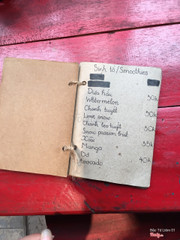 Sinh tố/Smoothies
Dưa hấu 50k
Watermelon
Chanh tuyết 50k
Lime snow
Chanh leo tuyết 50k
Snow passion fruit
Xoài 55k
Mango
Bơ 60k
Avocado